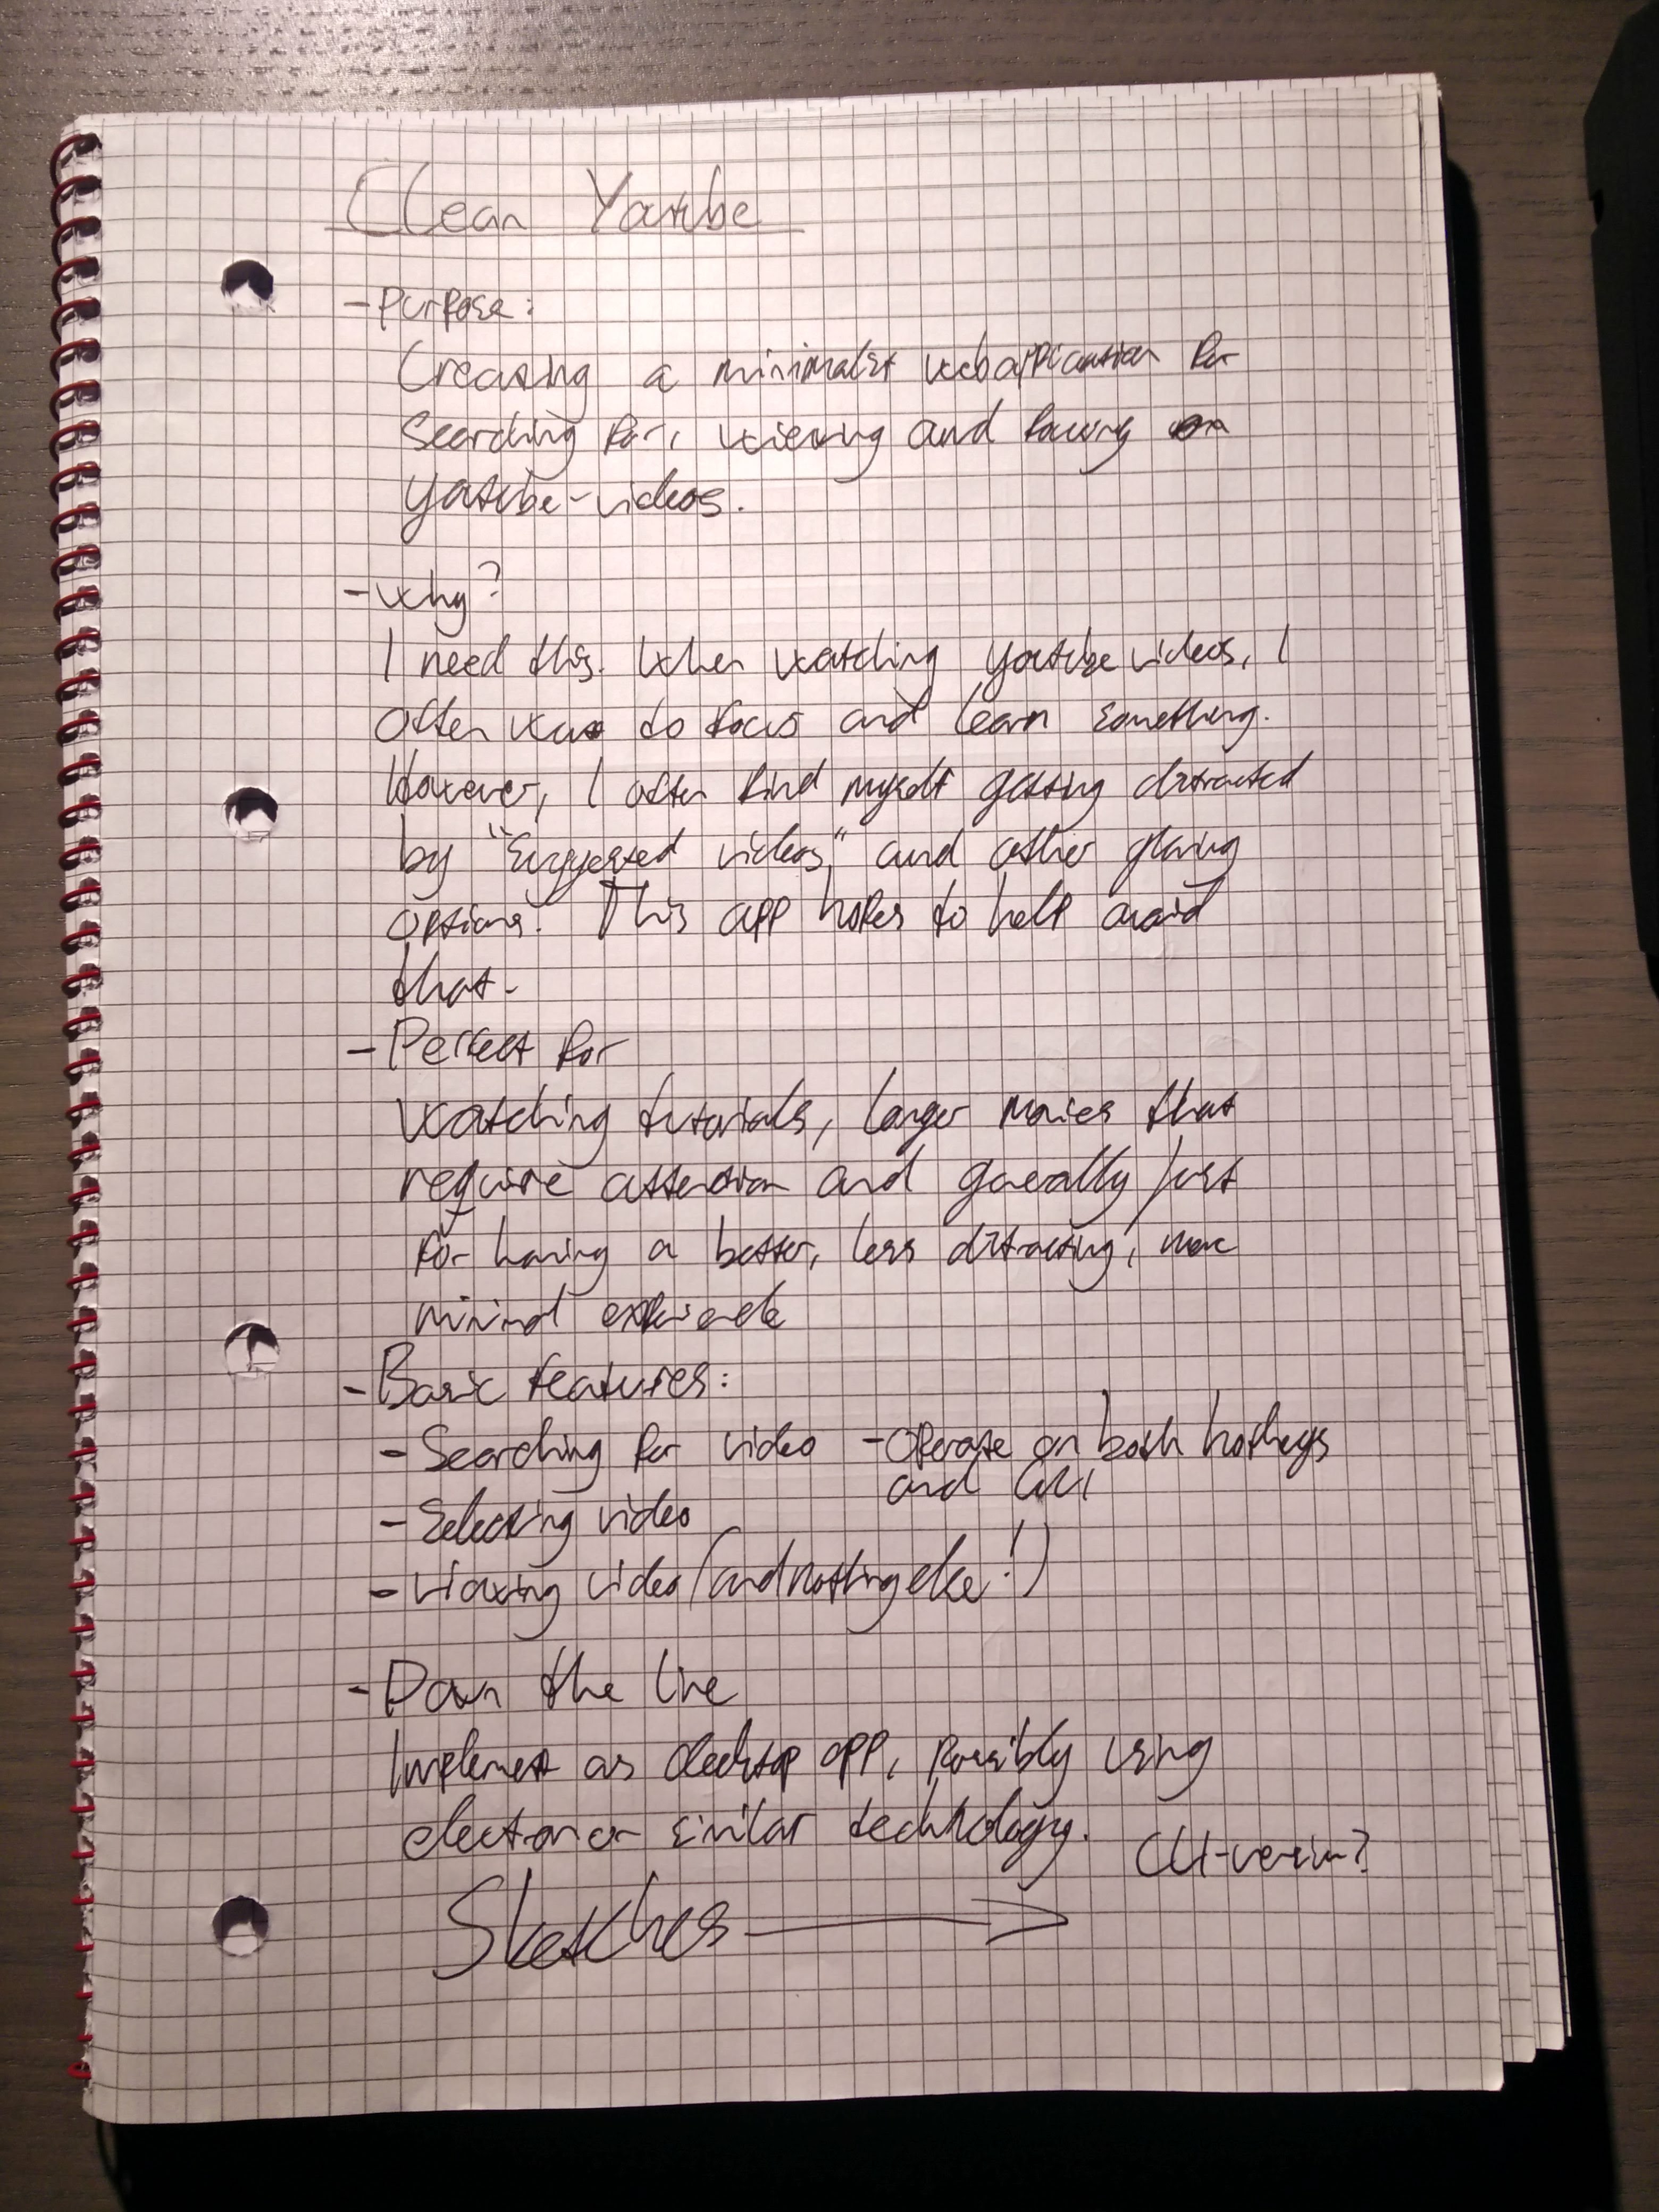 Clean Youtube
- Purpose:
Creating a minimalist webapplication for
searching for, viewing and focusing on
youtube-videos.
- Why?
I need this. When watching youtube videos, I
often want to focus and learn something.
However, I often find myself getting distracted
by "suggested videos," and other glaring
options. This app hopes to help avoid
that.
- Perfect for
watching tutorials, longer movies that
require attention and generally just
for having a better, less distracting, more
minimal experience
- Basic features:
- Searching for video
- Operate on both hotkeys
and GUI
- Selecting video
- Viewing video (and nothing else!)
- Down the line
Implement as desktop app, possibly using
electron or similar technology.
CLI-version?
Sketches →